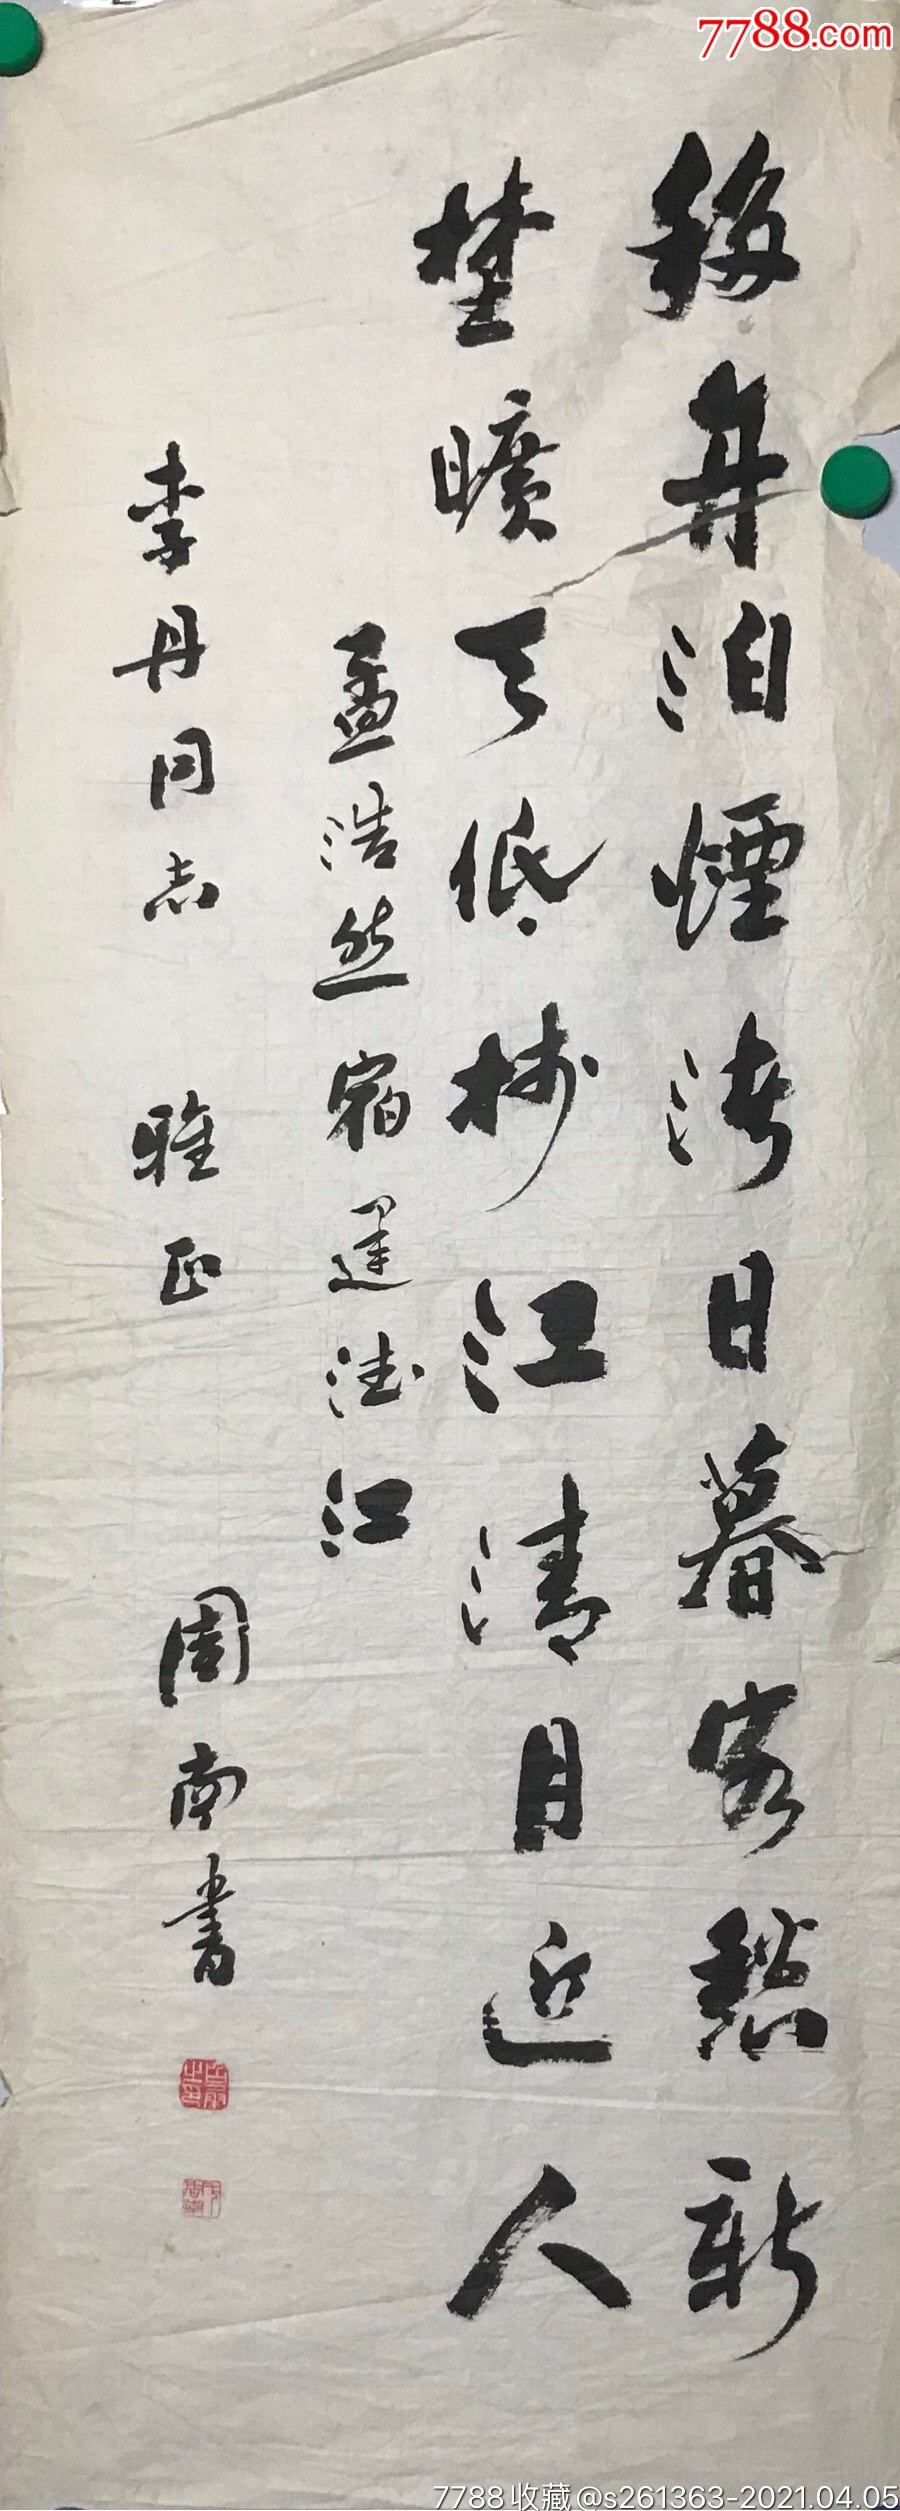 7788.com
移舟泊煙渚日暮客愁新
埜曠天低樹江清月近人
孟浩然宿建德江
李丹同志 雅正 周南書
7788收藏@s261363-2021.04.05